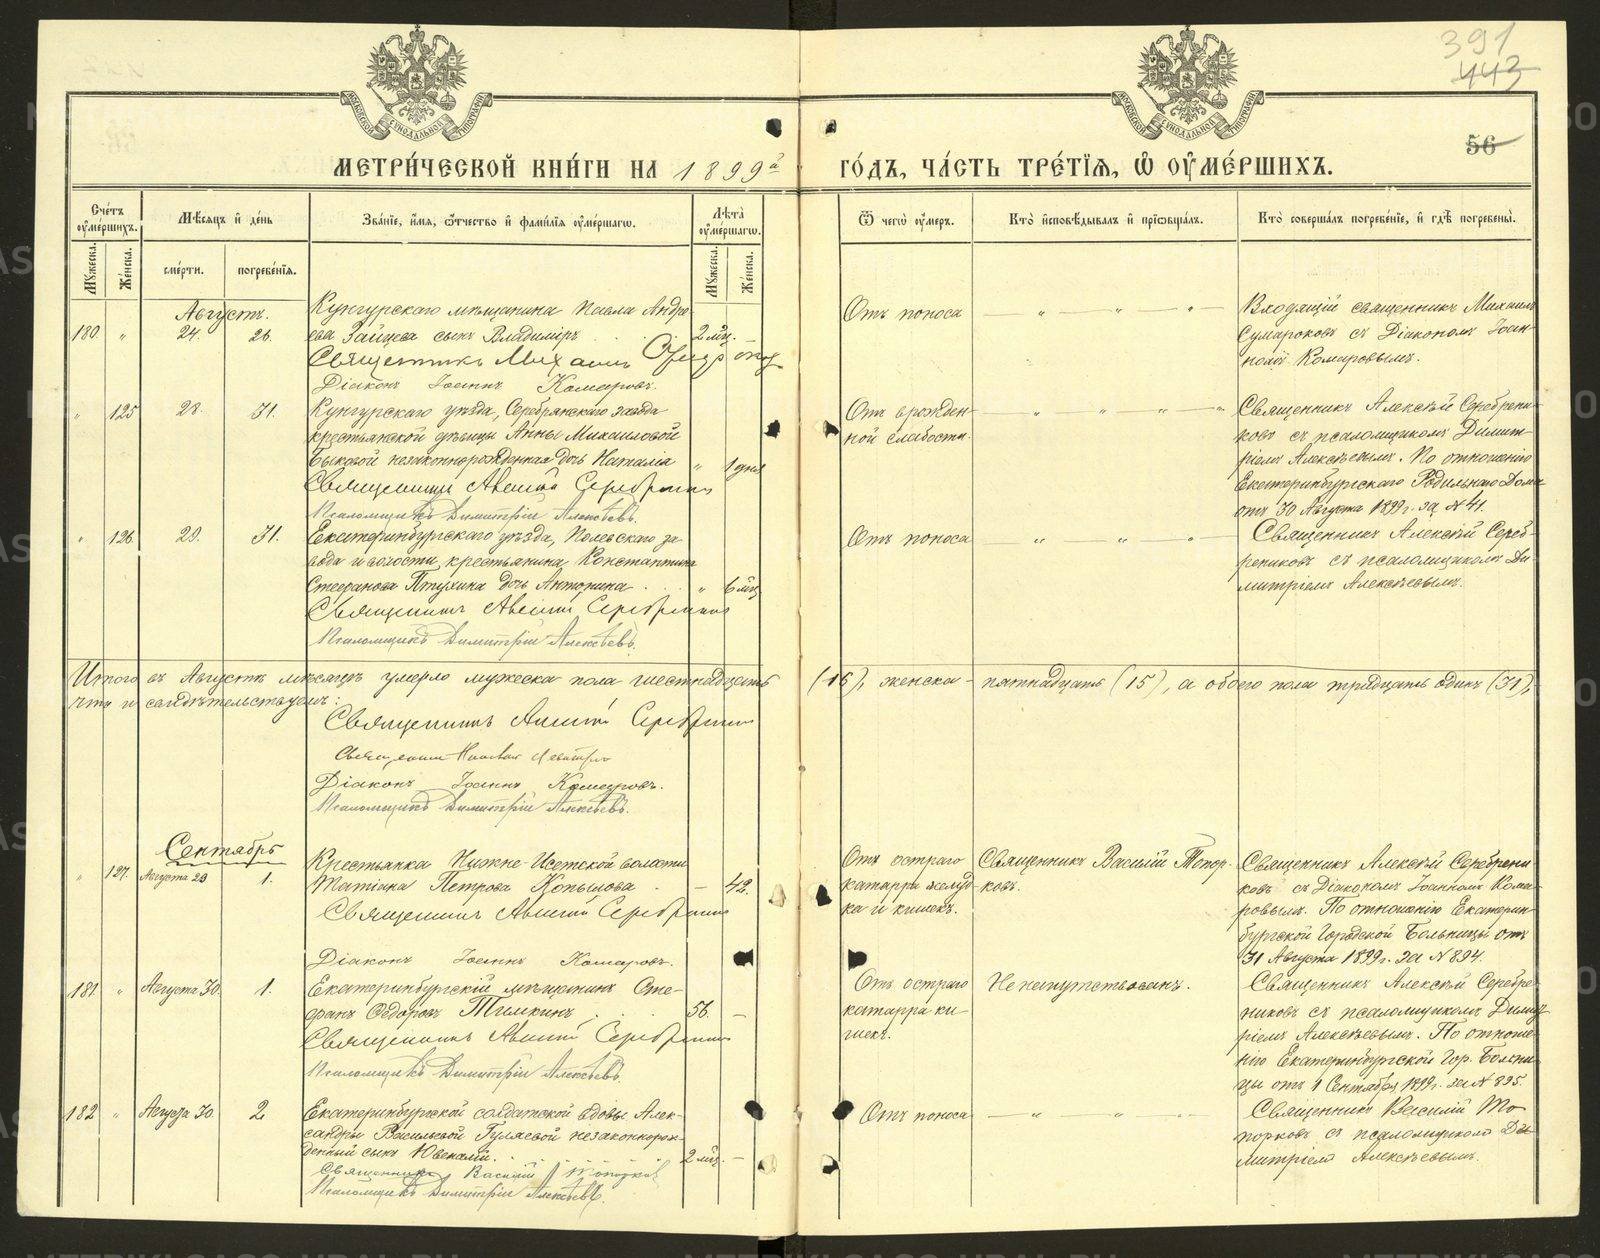 391
443
56
МОСКОВСКОЙ СѴНОДАЛЬНОЙ ТИПОГРАФІИ
МОСКОВСКОЙ СѴНОДАЛЬНОЙ ТИПОГРАФІИ
МЕТРИ́ЧЕСКОЙ КНИ́ГИ НА 1899й
ГО́ДЪ, ЧА́СТЬ ТРЕ́ТІЯ, Ѡ ОУМЕ́РШИХЪ.
Сче́тъ оумершихъ.
Мужеска.
Же́нска.
Мѣсяцъ и де́нь
сме́рти.
погребе́нія.
Зва́ніе, имя, отчество и фами́лія оуме́ршаго.
Лѣта оуме́ршаго.
Мужеска.
Же́нска.
Ѿ чего оумеръ.
Кто исповѣдывалъ и пріобщалъ.
Кто соверша́лъ погребе́ніе, и гдѣ погребены.
Августъ.
180. " 24. 26.
Кунгурскаго мѣщанина Павла Андре-
ева Зайцева сынъ Владиміръ . . . 2 мѣц. –
Священникъ Михаилъ
Діаконъ Іоаннъ Комаровъ.
Отъ поноса
— " — " — " —
Входящій священникъ Михаилъ
Сумароковъ съ Діакономъ Іоан-
номъ Комаровымъ.
" 125 28. 31.
Кунгурскаго уѣзда, Серебрянскаго завода
крестьянской дѣвицы Анны Михаиловой
Быковой незаконнорожденная дочь Наталія " 1 дня
Священникъ Алексій Серебрениковъ
Псаломщикъ Димитрій Алексѣевъ.
Отъ врожден-
ной слабости.
" " " "
Священникъ Алексѣй Серебрени-
ковъ съ псаломщикомъ Димит-
ріемъ Алексѣевымъ. По отношенію
Екатеринбургскаго Родильнаго Дома
отъ 30 Августа 1899 г. за № 41.
" 126 29. 31.
Екатеринбургскаго уѣзда, Полевскаго за-
вода и волости, крестьянина Константина
Стефанова Птухина дочь Антонина . . " 6 мѣц.
Священникъ Алексій Серебрениковъ
Псаломщикъ Димитрій Алексѣевъ.
Отъ поноса
" " "
Священникъ Алексѣй Сереб-
рениковъ съ псаломщикомъ Ди-
митріемъ Алексѣевымъ.
Итого въ Августѣ мѣсяцѣ умерло мужеска пола шестнадцать (16), женска – пятнадцать (15), а обоего пола тридцать одинъ (31),
что и свидѣтельствуемъ:
Священникъ Алексій Серебрениковъ
Священникъ
Діаконъ Іоаннъ Комаровъ.
Псаломщикъ Димитрій Алексѣевъ.
Сентябрь
" 127. Августа 29 1.
Крестьянка Нижне-Исетской волости
Татіана Петрова Копылова . – 42.
Священникъ Алексій Серебрениковъ
Діаконъ Іоаннъ Комаровъ.
Отъ остраго
катарра желуд-
ка и кишекъ.
Священникъ Василій Топор-
ковъ.
Священникъ Алексѣй Серебрени-
ковъ съ Діакономъ Іоанномъ Кома-
ровымъ. По отношенію Екатерин-
бургской Городской Больницы отъ
31 Августа 1899 г. за № 894.
181. " Августа 30. 1.
Екатеринбургскій мѣщанинъ Сте-
фанъ Ѳедоровъ Тимкинъ . . 56. –
Священникъ Алексій Серебрениковъ
Псаломщикъ Димитрій Алексѣевъ.
Отъ остраго
катарра ки-
шекъ.
Не напутствованъ.
Священникъ Алексѣй Серебре-
никовъ съ псаломщикомъ Димит-
ріемъ Алексѣевымъ. По отноше-
нію Екатеринбургской Гор. Больни-
цы отъ 1 Сентября 1899 г. за № 895.
182 " Августа 30. 2.
Екатеринбургской солдатской вдовы Алек-
сандры Васильевой Гуляевой незаконнорож-
денный сынъ Ювеналій. . . 2 мѣц. –
Священникъ Василій Топорковъ
Псаломщикъ Димитрій Алексѣевъ.
Отъ поноса
— " " "
Священникъ Василій То-
порковъ съ псаломщикомъ Ди-
митріемъ Алексѣевымъ.